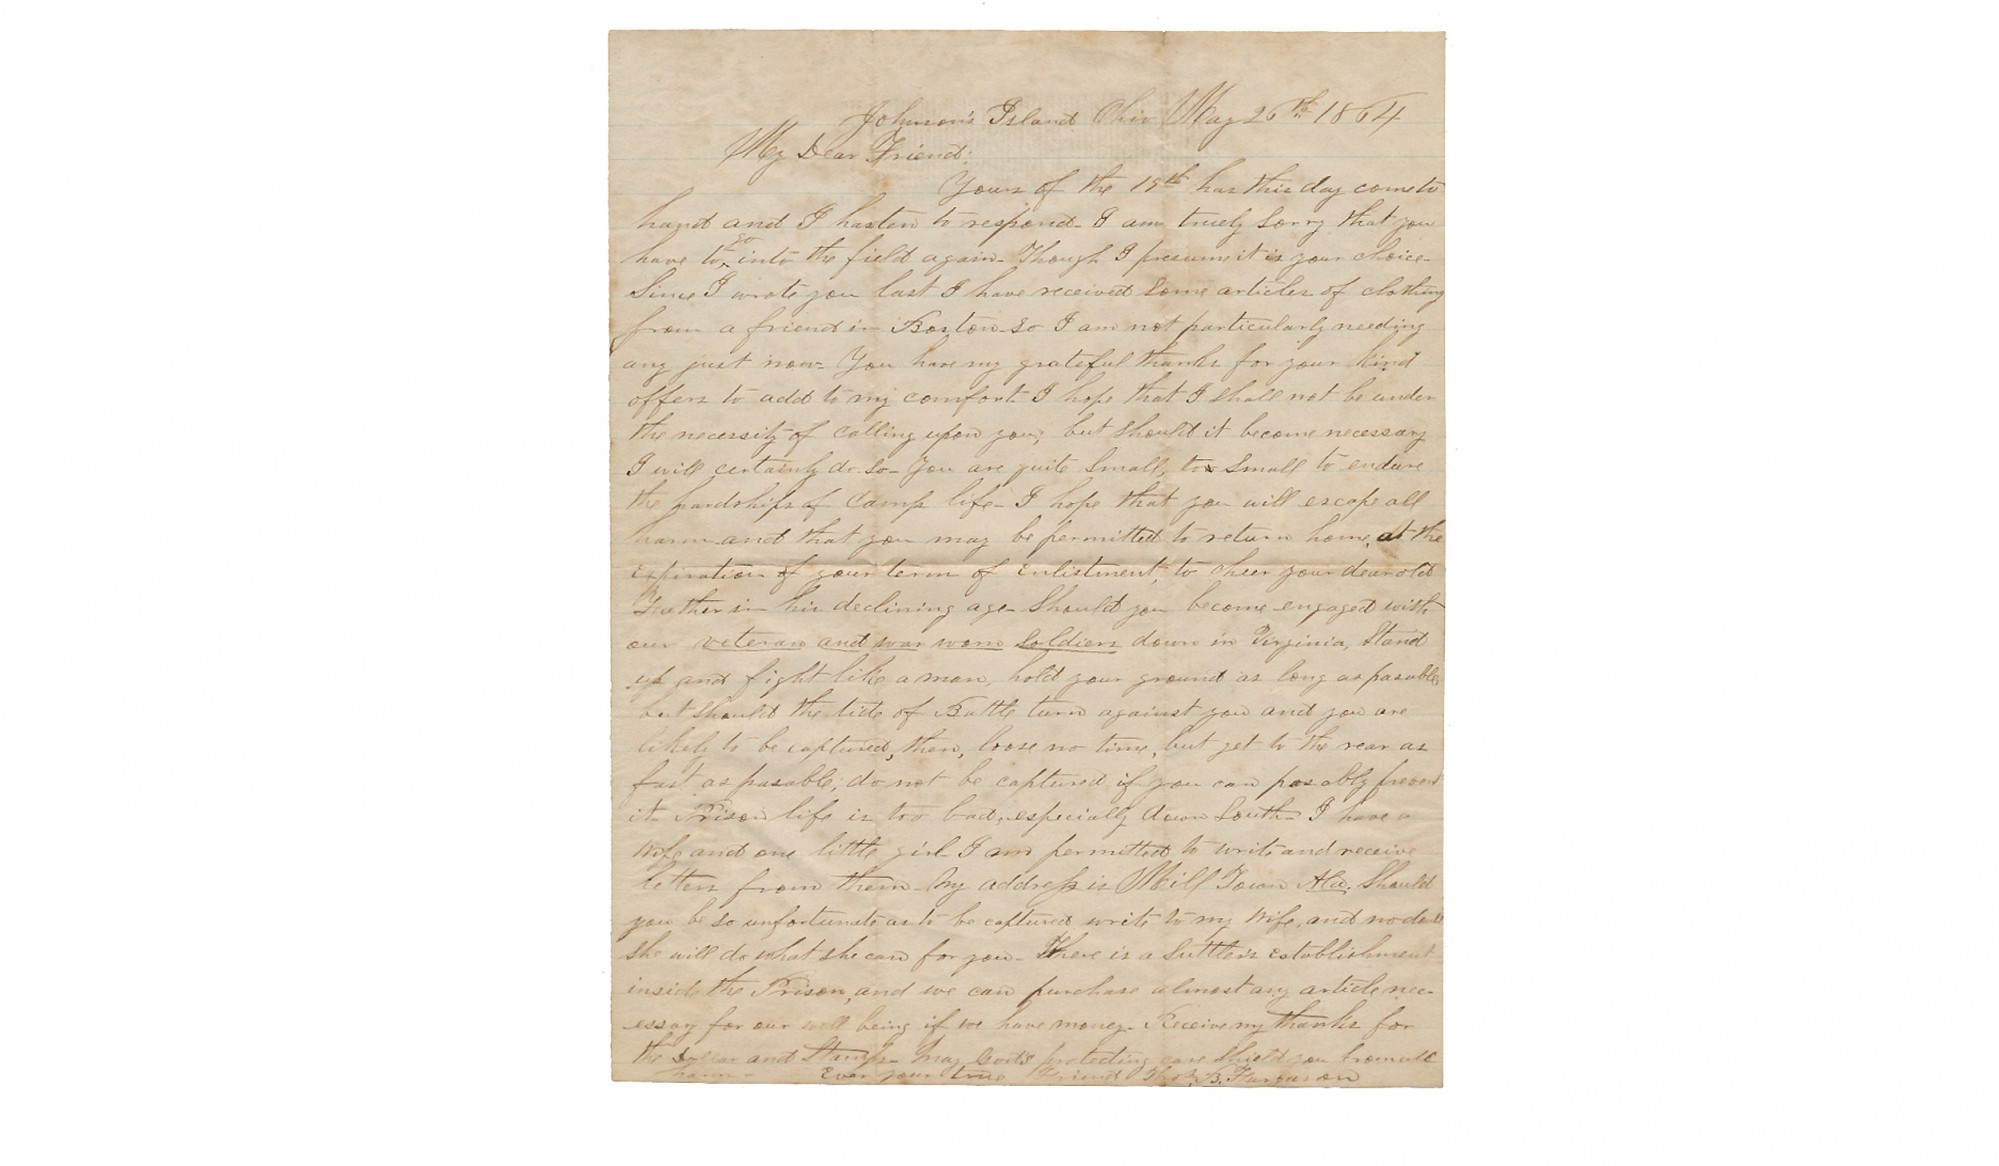 Johnson's Island Ohio May 26th 1864
My Dear Friend:
Yours of the 19th has this day come to
hand and I hasten to respond- I am truely sorry that you
have to go into the field again- Though I presume it is your choice-
Since I wrote you last I have received some articles of clothing
from a friend in Boston so I am not particularly needing
any just now- You have my grateful thanks for your kind
offers to add to my comfort. I hope that I shall not be under
the necessity of calling upon you, but should it become necessary
I will certainly do so- You are quite small, too small to endure
the hardships of Camp life- I hope that you will escape all
harm and that you may be permitted to return home, at the
expiration of your term of enlistment, to cheer your dear old
Father in his declining age- Should you become engaged with
our veteran and war worn soldiers down in Virginia, Stand
up and fight like a man, hold your ground as long as pasable
but should the tide of Battle turn against you and you are
likely to be captured, then, loose no time, but get to the rear as
fast as pasable, do not be captured if you can posably prevent
it- Prison life is too bad, especially down South- I have a
wife and one little girl- I am permitted to write and receive
letters from them- My address is Mill Town Ala. Should
you be so unfortunate as to be captured write to my wife, and no doubt
she will do what she can for you- There is a Suttler's establishment
inside the Prison, and we can purchase almost any article nec-
essary for our well being if we have money- Receive my thanks for
the Dollar and Stamps- May God's protecting care shield you from all
harm- Ever your true Friend Thos. B. Furguson